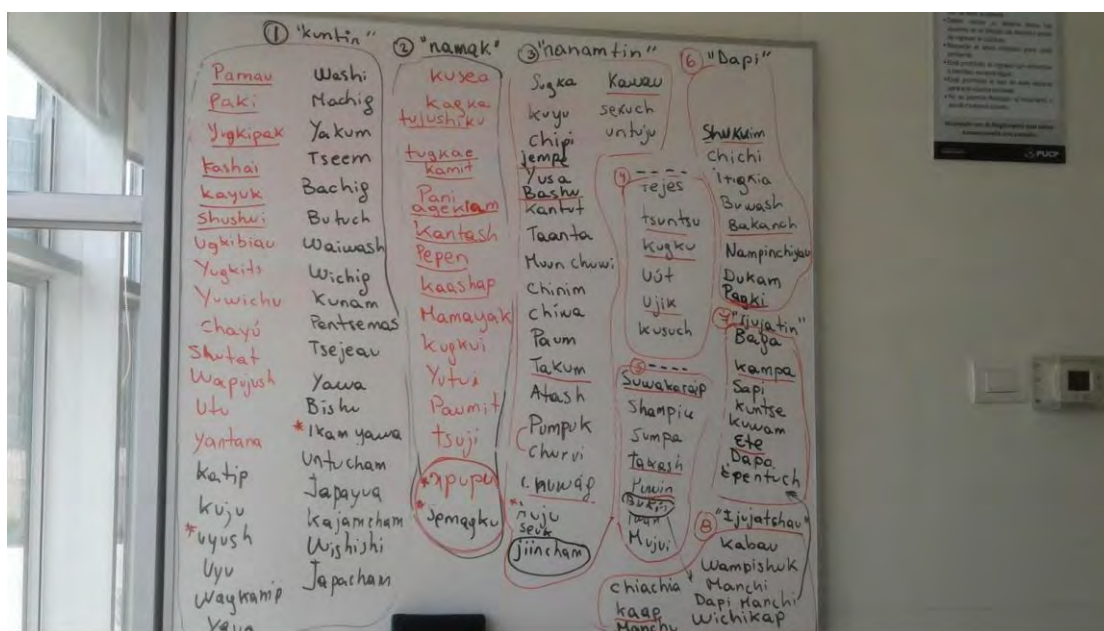 ① "kuntin"
Pamau
Paki
Yugkipak
Kashai
Kayuk
Shushui
Ugkibiau
Yugkits
Yuwichu
Chayú
Shutat
Wapujush
Utu
Yantana
Katip
Kuju
*uyush
Uyu
Waykamp
Washi
Machig
Yakum
Tseem
Bachig
Butuch
Waiwash
Wichig
Kunam
Pentsemas
Tsejeau
Yawa
Bishu
*Ikam yawa
Untucham
Japayua
Kajamcham
Wishishi
Japacham
② "namak"
Kusea
Kagka
tujushiku
tugkae
kamit
Pani
agekiam
Kantash
Pepen
kaashap
Mamayak
Kugkui
Yutui
Paumit
tsuji
*apupu
*Jemagku
③ "nanamtin"
Sugka
kuyu
Chipi
jempe
Yusa
Bashu
Kantut
Taanta
Muun chuwi
Chinim
Chiwa
Paum
Takum
Atash
Pumpuk
Churvi
nuju
seuk
jiincham
Kawau
sekuch
untuju
④ - - - -
Tejes
tsuntsu
Kugku
Uút
Ujik
Kusuch
⑤ - - - -
Suwakaraip
Shampiu
Sumpa
Takash
Puwin
Bukin
Mujui
⑥ "Dapi"
Shukuim
Chichi
Itigkia
Buwash
Bakanch
Nampinchiyau
Dukam
Pagki
⑦ "Ijujatin"
Baga
Kampa
Sapi
Kuntse
Kuwam
Ete
Dapa
Epentuch
⑧ "Ijujatshau"
Kabau
Wampishuk
Manchi
Dapi Manchi
Wichikap
chiachia
kaap
Manchu
PUCP